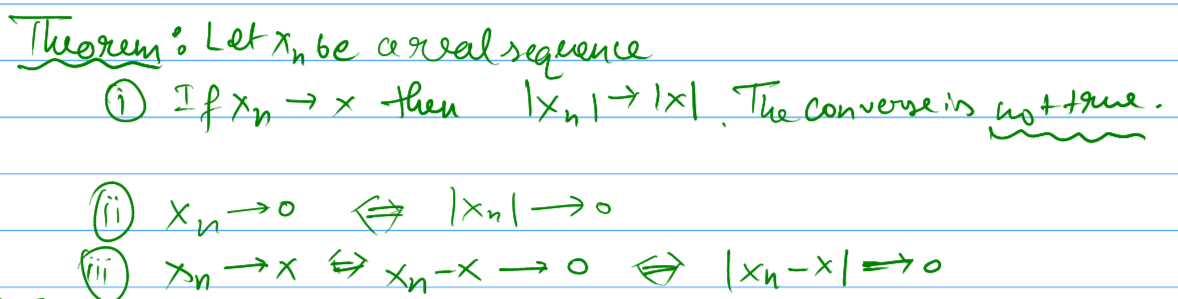 Theorem: Let xₙ be a real sequence
(i) If xₙ → x then |xₙ| → |x|. The converse is not true.
(ii) xₙ → 0 ⇔ |xₙ| → 0
(iii) xₙ → x ⇔ xₙ - x → 0 ⇔ |xₙ - x| → 0